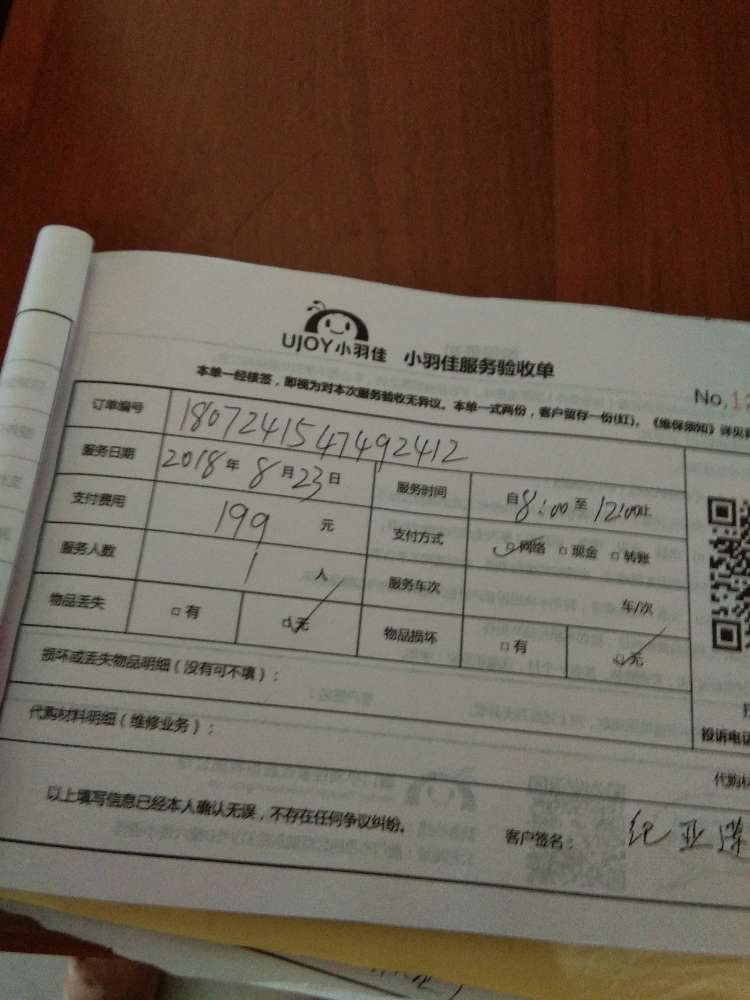 UJOY小羽佳 小羽佳服务验收单
No.1
本单一经核签，即视为对本次服务验收无异议。本单一式两份，客户留存一份(红)。《维保须知》详见
订单编号 1807241547492412
服务日期 2018年8月23日 服务时间 自8:00至12:00止
支付费用 199元 支付方式 □网络 □现金 □转账
服务人数 1人 服务车次 车/次
物品丢失 □有 □无 物品损坏 □有 □无
损坏或丢失物品明细（没有可不填）：
代购材料明细（维修业务）：
投诉电话
代购材
以上填写信息已经本人确认无误，不存在任何争议纠纷。 客户签名： 纪亚